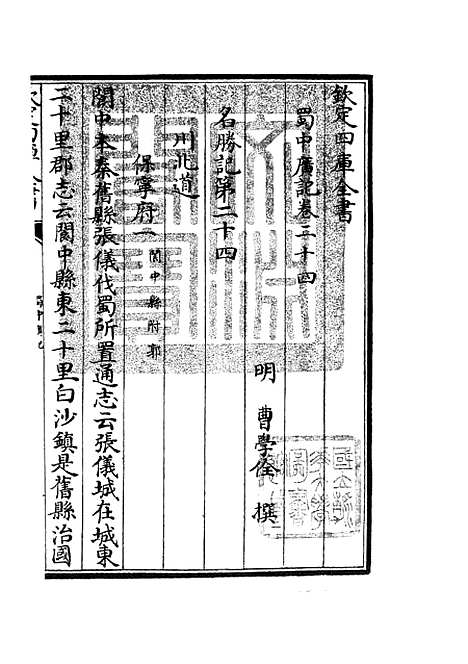 欽定四庫全書
蜀中廣記卷二十四
明 曹學佺 撰
名勝記第二十四
川北道
保寧府一 閬中縣附郭
閬中本秦舊縣張儀伐蜀所置通志云張儀城在城東
二十里郡志云閬中縣東二十里白沙鎮是舊縣治國